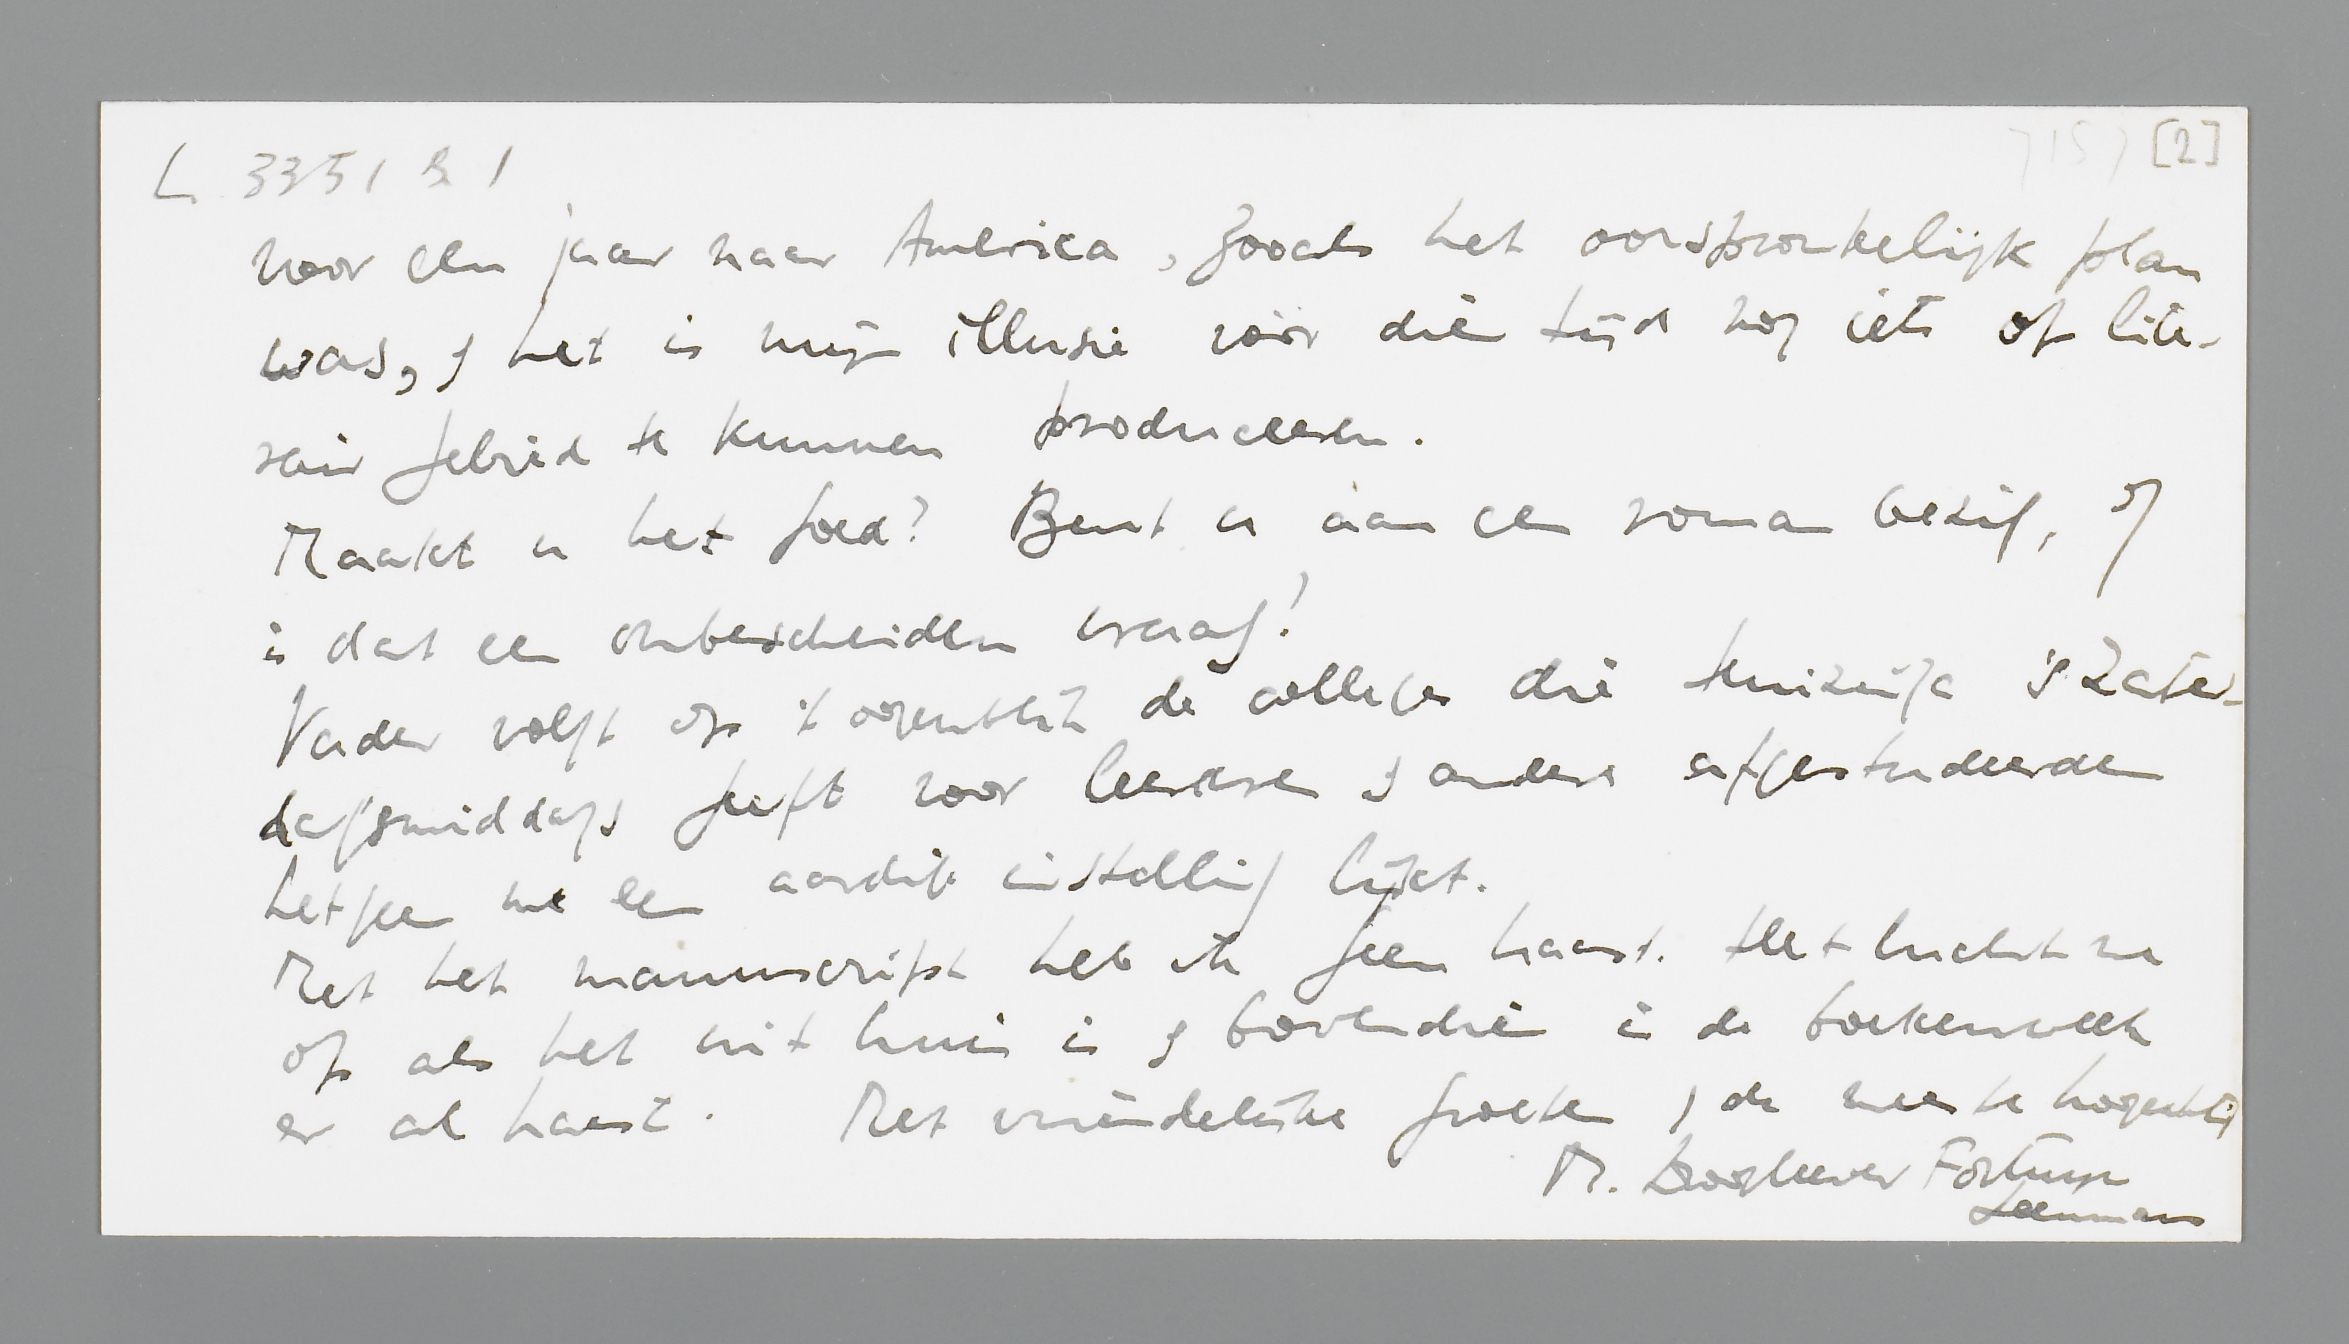 L. 3351 B 1
7157 [2]
voor een jaar naar America, zooals het oorspronkelijk plan
was, & het is mijn illusie vóór dien tijd nog iets op lite-
rair gebied te kunnen produceeren.
Maakt u het goed? Bent u aan een roman bezig, of
is dat een onbescheiden vraag?
Verder volgt op 't oogenblik de colleges die Huizinga 's Zater-
dagsmiddags geeft voor leeraren & andere afgestudeerden
hetgeen me een aardige instelling lijkt.
Met het manuscript heb ik geen haast. Het lucht me
op als het uit huis is & bovendien is de boekenweek
er al haast. Met vriendelijke groeten, & de meeste hoogachting
M. Droogleever Fortuyn
Leenmans